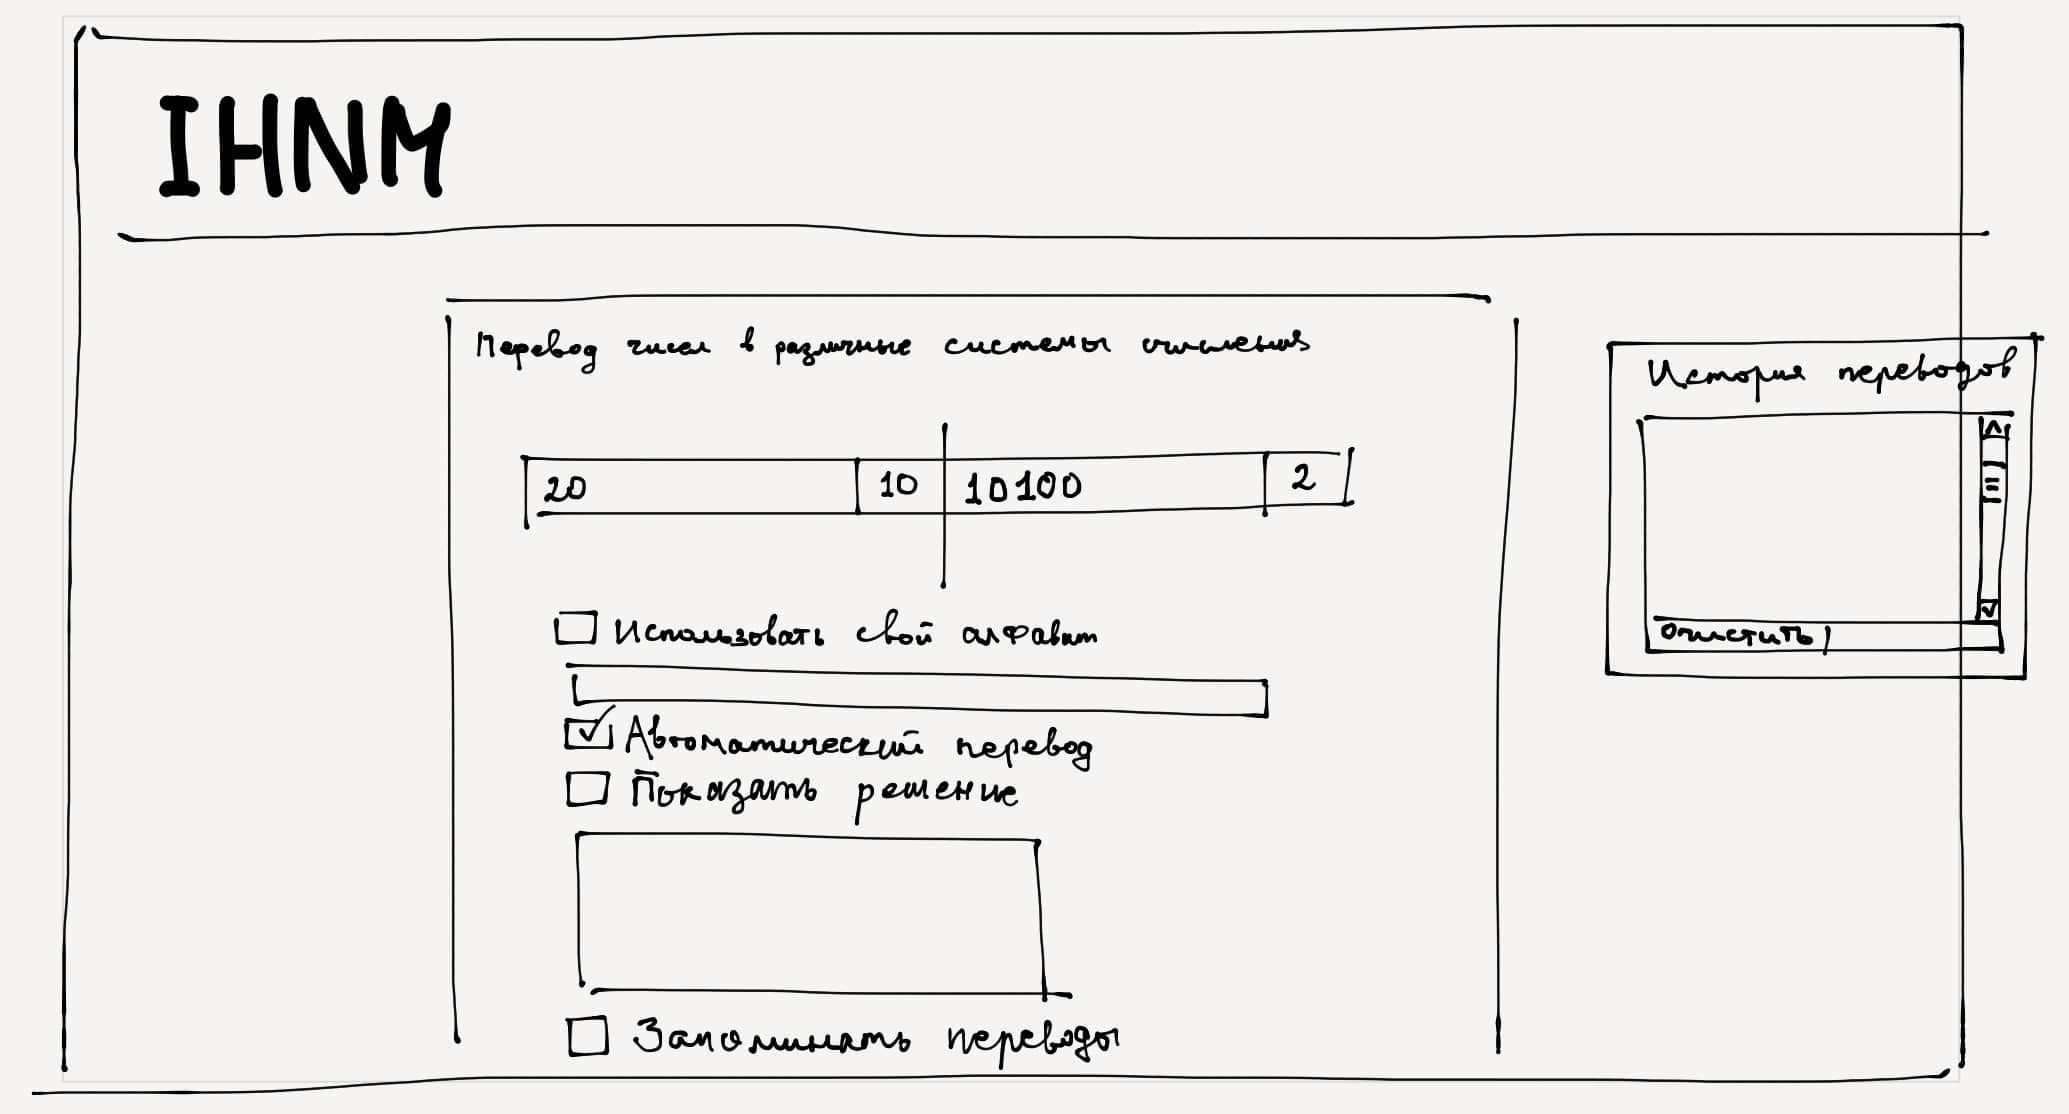 IHNM
Перевод чисел в различные системы счисления
20 10 10100 2
Использовать свой алфавит
Автоматический перевод
Показать решение
Запоминать переводы
История переводов
Очистить